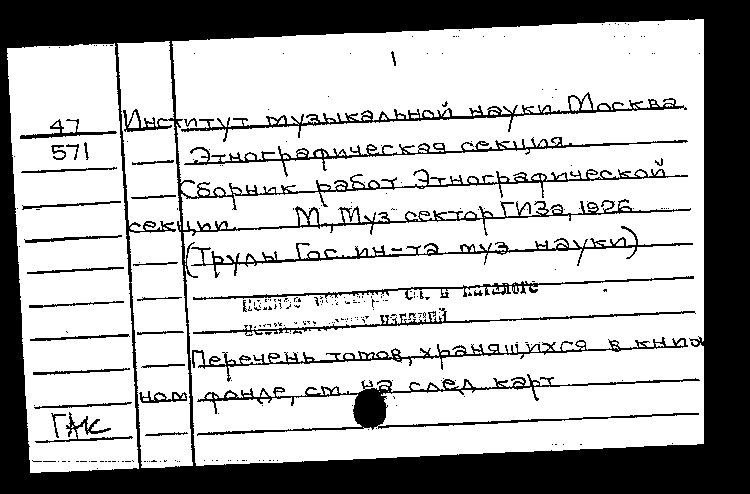 1
47 Институт музыкальной науки. Москва.
571 Этнографическая секция.
Сборник работ Этнографической
секции. М., Муз сектор ГИЗа, 1926
(Труды Гос. ин-та муз науки)
полное см. в каталоге
изданий
Перечень томов, хранящихся в книж
ном фонде, см. на след карт
ГАК